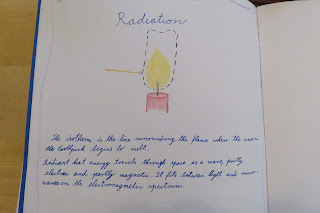 Radiation
The isotherm is the line surrounding the flame where the wax on
the toothpick begins to melt.
Radiant heat energy travels through space as a wave, partly
electric and partly magnetic. It fits between light and micro-
waves on the electromagnetic spectrum.